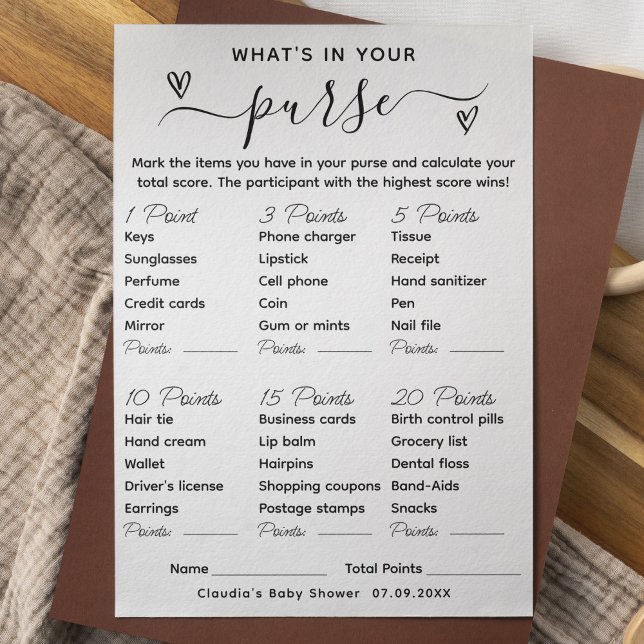 WHAT'S IN YOUR
purse
Mark the items you have in your purse and calculate your
total score. The participant with the highest score wins!
1 Point
Keys
Sunglasses
Perfume
Credit cards
Mirror
Points:
3 Points
Phone charger
Lipstick
Cell phone
Coin
Gum or mints
Points:
5 Points
Tissue
Receipt
Hand sanitizer
Pen
Nail file
Points:
10 Points
Hair tie
Hand cream
Wallet
Driver's license
Earrings
Points:
15 Points
Business cards
Lip balm
Hairpins
Shopping coupons
Postage stamps
Points:
20 Points
Birth control pills
Grocery list
Dental floss
Band-Aids
Snacks
Points:
Name Total Points
Claudia's Baby Shower 07.09.20XX